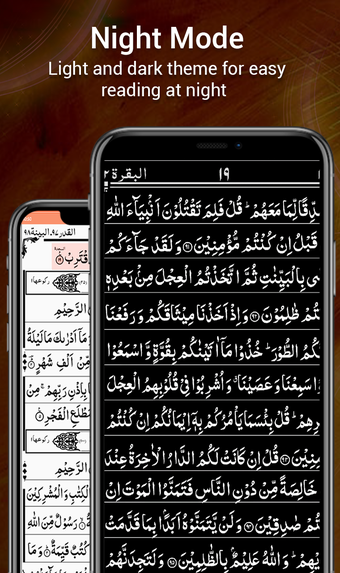 Night Mode
Light and dark theme for easy
reading at night
البقرة ٢
١٩
مُصَدِّقًا لِّمَا مَعَهُمْ ؕ قُلْ فَلِمَ تَقْتُلُوْنَ اَنْۢبِيَآءَ اللّٰهِ
قَبْلُ اِنْ كُنْتُمْ مُّؤْمِنِيْنَ ﴿۹۱﴾ وَ لَقَدْ جَآءَكُمْ
بِالْبَيِّنٰتِ ثُمَّ اتَّخَذْتُمُ الْعِجْلَ مِنْۢ بَعْدِهٖ
ظٰلِمُوْنَ ﴿۹۲﴾ وَ اِذْ اَخَذْنَا مِيْثَاقَكُمْ وَ رَفَعْنَا
الطُّوْرَ ؕ خُذُوْا مَاۤ اٰتَيْنٰكُمْ بِقُوَّةٍ وَّ اسْمَعُوْا
سَمِعْنَا وَ عَصَيْنَا ۗ وَ اُشْرِبُوْا فِيْ قُلُوْبِهِمُ الْعِجْلَ
قُلْ بِئْسَمَا يَاْمُرُكُمْ بِهٖۤ اِيْمَانُكُمْ اِنْ كُنْتُمْ
قُلْ اِنْ كَانَتْ لَكُمُ الدَّارُ الْاٰخِرَةُ عِنْدَ
خَالِصَةً مِّنْ دُوْنِ النَّاسِ فَتَمَنَّوُا الْمَوْتَ اِنْ
صٰدِقِيْنَ ﴿۹۴﴾ وَ لَنْ يَّتَمَنَّوْهُ اَبَدًۢا بِمَا قَدَّمَتْ
وَ اللّٰهُ عَلِيْمٌۢ بِالظّٰلِمِيْنَ ﴿۹۵﴾ وَ لَتَجِدَنَّهُمْ
القدر ٩٧، البينة ٩٨
الرَّحِيْمِ
مَاۤ اَدْرٰىكَ مَا لَيْلَةُ
مِّنْ اَلْفِ شَهْرٍ
بِاِذْنِ رَبِّهِمْ ۚ مِنْ
مَطْلَعِ الْفَجْرِ
الرَّحِيْمِ
الْكِتٰبِ وَ الْمُشْرِكِيْنَ
رَسُوْلٌ مِّنَ اللّٰهِ
كُتُبٌ قَيِّمَةٌ ؕ وَ مَا